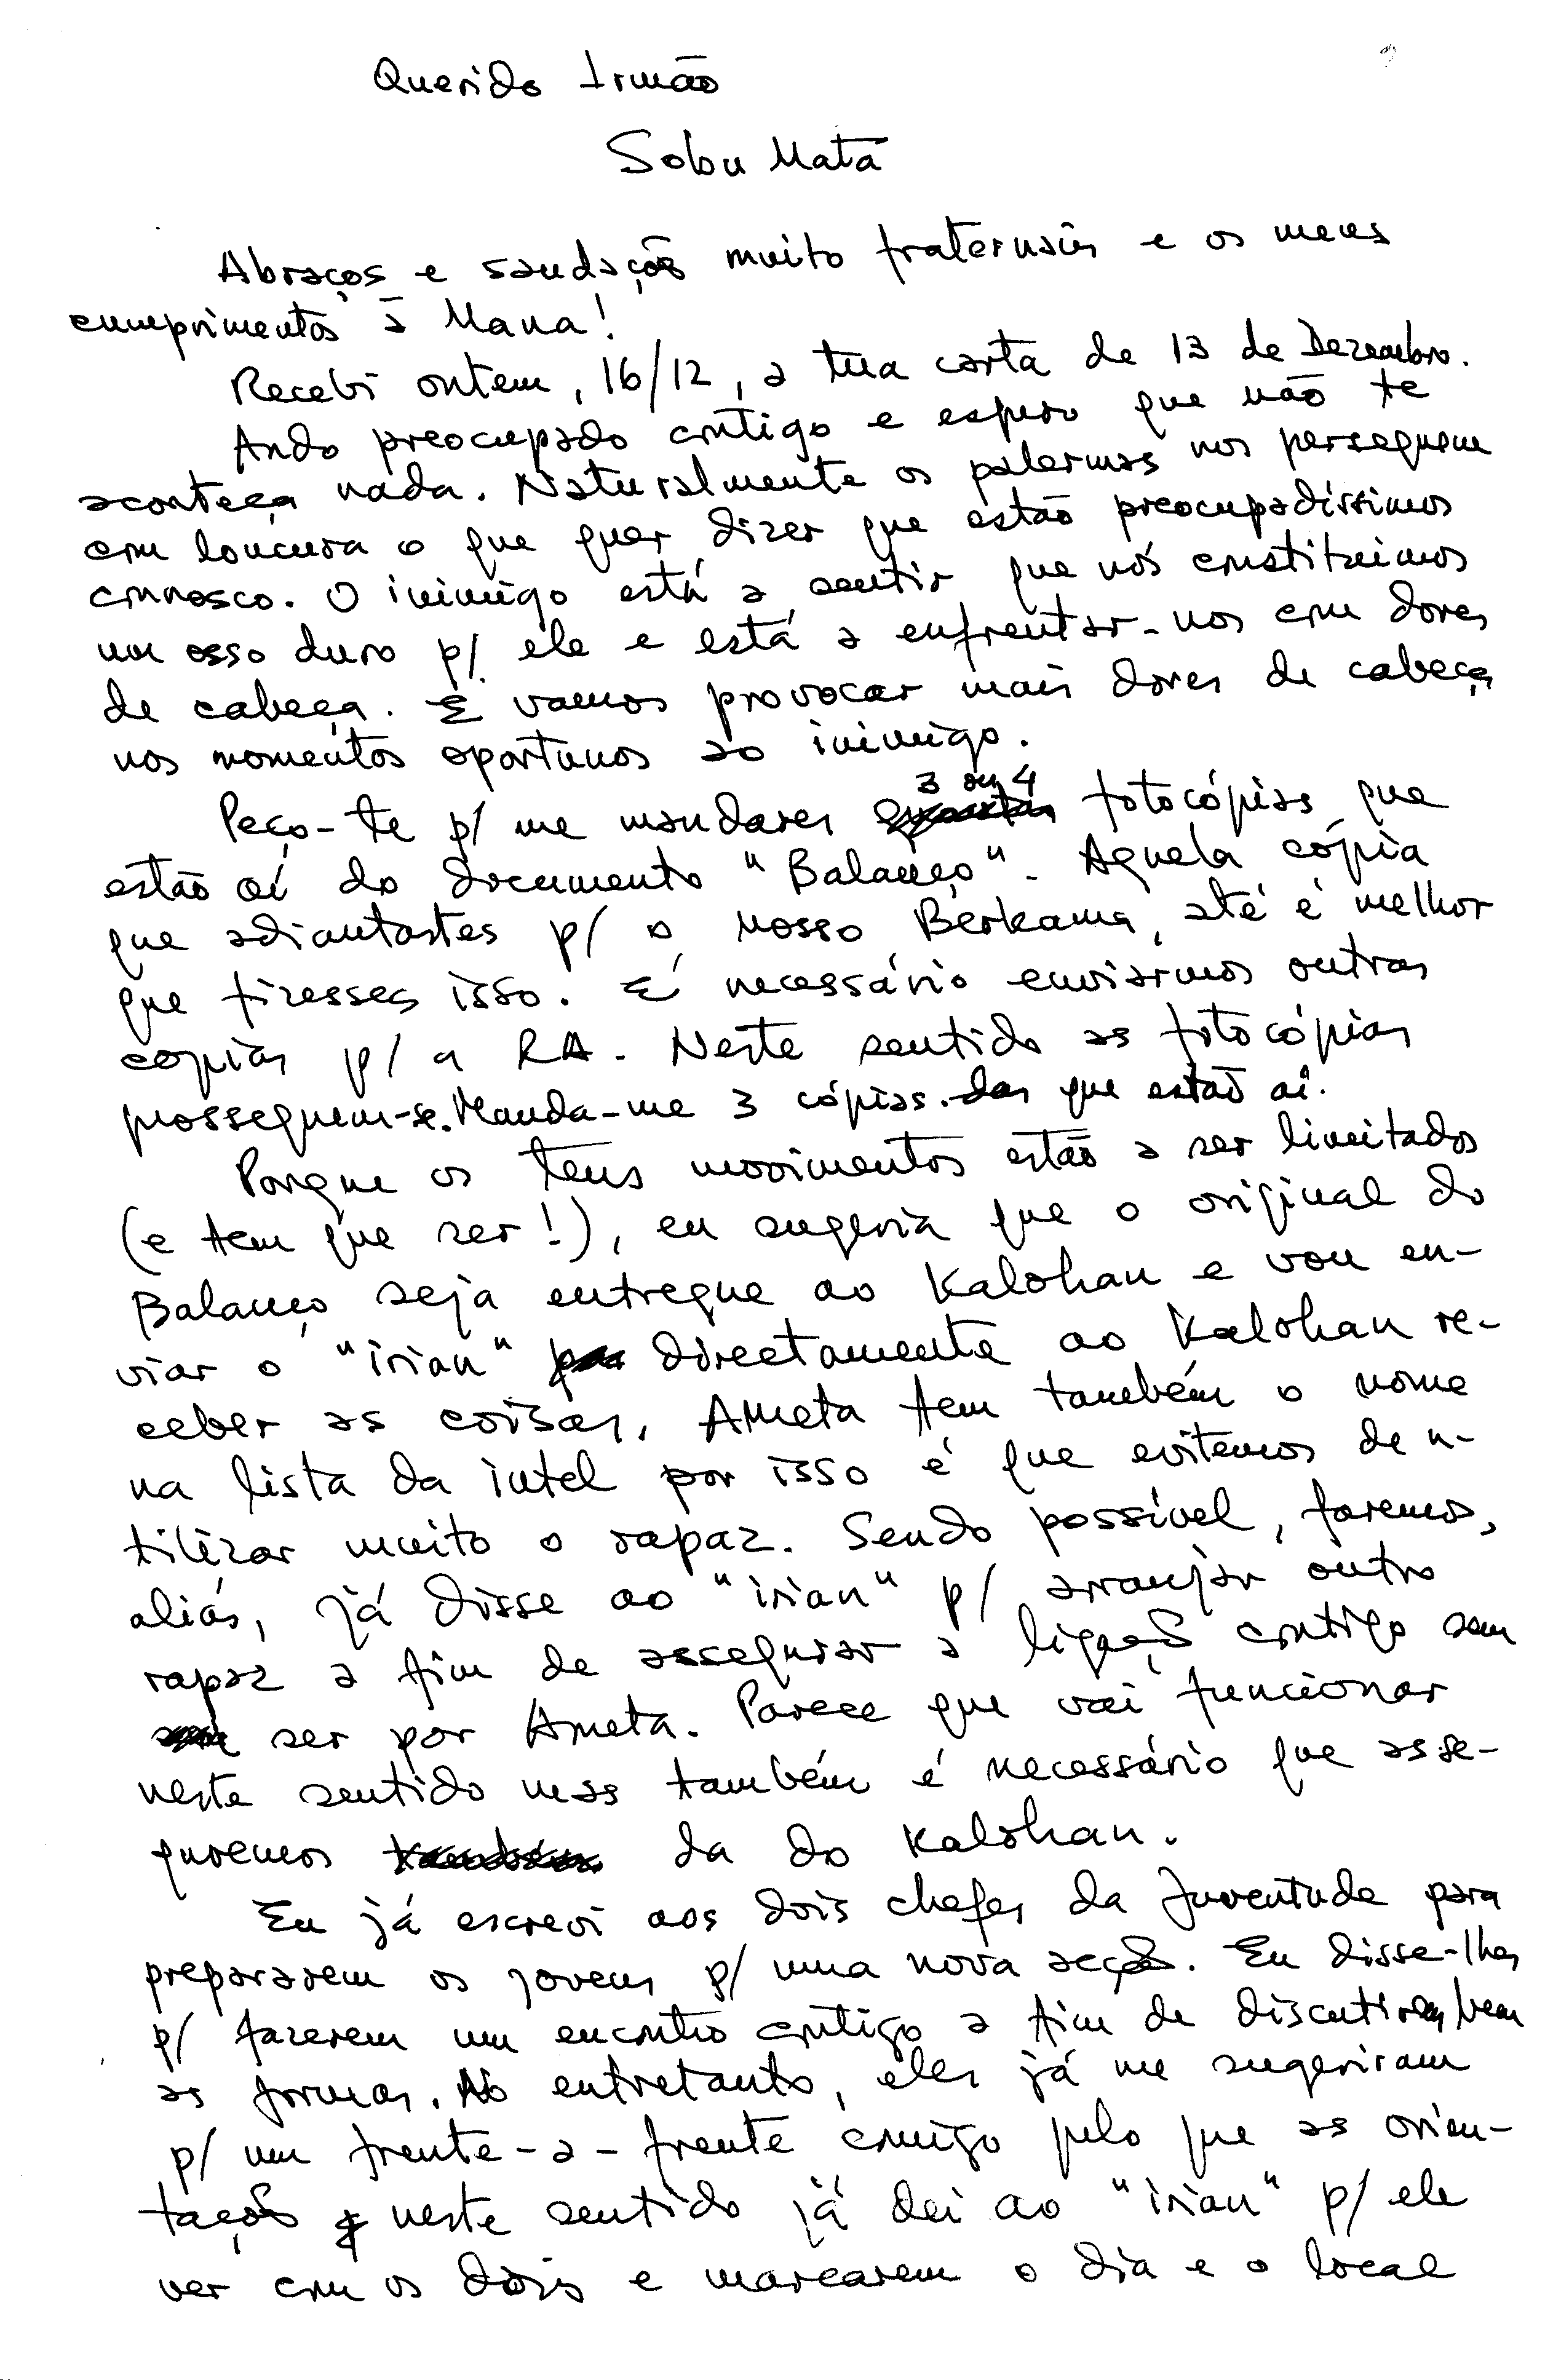 Querido Irmão
Sobu Matã
Abraços e saudações muito fraternais e os meus
cumprimentos à Mana!
Recebi ontem, 16/12, a tua carta de 13 de Dezembro.
Ando preocupado contigo e espero que não te
aconteça nada. Naturalmente os palermas nos perseguem
com loucura o que quer dizer que estão preocupadíssimos
connosco. O inimigo está a sentir que nós constituimos
um osso duro p/ ele e está a enfrentar-nos com dores
de cabeça. E vamos provocar mais dores de cabeça
nos momentos oportunos ao inimigo.
Peço-te p/ me mandares 3 ou 4 fotocópias que
estão aí do documento "Balanço". Aquela cópia
que adiantastes p/ o nosso Berkama, até é melhor
que fizesses isso. É necessário enviarmos outras
copias p/ a RA. Neste sentido as fotocópias
prosseguem-se. Manda-me 3 cópias. das que estão aí.
Porque os teus movimentos estão a ser limitados
(e tem que ser!), eu sugeria que o original do
Balanço seja entregue ao Kalohan e vou en-
viar o "irian" directamente ao Kalohan re-
ceber as coisas. Ameta tem também o nome
na lista da intel por isso é que evitemos de u-
tilizar muito o rapaz. Sendo possível, faremos,
aliás, já disse ao "irian" p/ arranjar outro
rapaz a fim de assegurar a ligação contigo sem
ser por Ameta. Parece que vai funcionar
neste sentido mas também é necessário que asse-
guremos da do Kalohan.
Eu já escrevi aos dois chefes da Juventude para
prepararem os jovens p/ uma nova acção. Eu disse-lhes
p/ fazerem um encontro contigo a fim de discutirem bem
as formas. No entretanto, eles já me sugeriram
p/ um frente-a-frente comigo pelo que as orien-
tações neste sentido já dei ao "irian" p/ ele
ver com os dois e marcarem o dia e o local